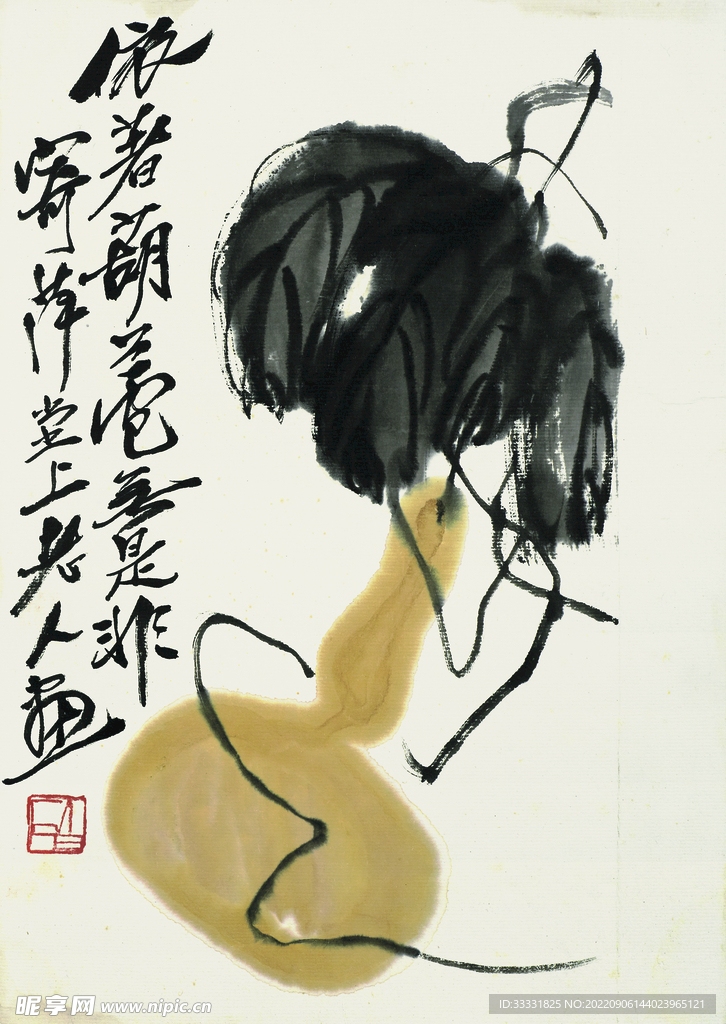 依著葫蘆無是非
寄萍堂上老人畫
昵享网 www.nipic.cn
ID:33331825 NO:20220906144023965121